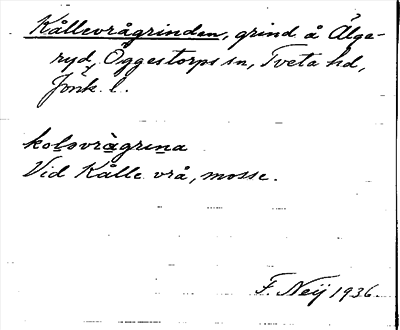 Kållevrågrinden, grind å Älge-
ryd, Öggestorps sn, Tveta hd,
Jönk. l.
kolsvràgrına
Vid Kålle vrå, mosse.
F. Neij 1936.